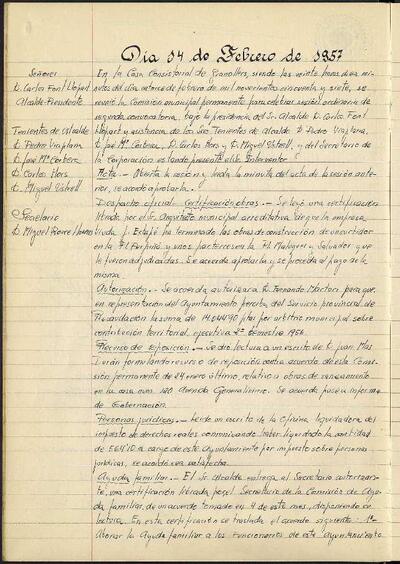 Dia 14 de Febrero de 1957
Señores
D. Carlos Font Llopart
Alcalde-Presidente
Tenientes de Alcalde
D. Pedro Viaplana
D. José Mª Corbera
D. Carlos Hors
D. Miguel
Secretario
D. Miguel
En la Casa Consistorial de Granollers, siendo las veinte horas diez mi-
nutos del día catorce de febrero de mil novecientos cincuenta y siete, se
reunió la Comisión municipal permanente para celebrar sesión ordinaria de
segunda convocatoria, bajo la presidencia del Sr. Alcalde D. Carlos Font
Llopart y asistencia de los Sres. Tenientes de Alcalde D. Pedro Viaplana,
D. José Mª Corbera, D. Carlos Hors y D. Miguel y del Secretario de
la Corporación estando presente el Sr. Interventor.
Acta.- Abierta la sesión y leída la minuta del acta de la sesión ante-
rior, se acordó aprobarla.
Despacho oficial. Certificación obras.- Se leyó una certificación
librada por el Sr. Arquitecto municipal acreditativa de que la empresa
Viuda J. ha terminado las obras de construcción de un corredor
en la Pl. y unos parterres en la Pl. Maluquer y Salvador y que
le fueron adjudicadas. Se acuerda aprobarla y se proceda al pago de la
misma.
Autorización.- Se acuerda autorizar a D. Fernando para que,
en representación del Ayuntamiento perciba del Servicio provincial de
Recaudación la suma de ptas por arbitrio municipal sobre
contribución territorial, ejecutiva 2º semestre 1956.
Recurso de reposición.- Se dio lectura a un escrito de D. Juan Mas
formulando recurso de reposición contra acuerdo de esta Comi-
sión permanente de 24 enero último, relativo a obras de saneamiento
en la casa núm. 120 Avenida Generalísimo. Se acuerda pase a informe
de Gobernación.
Personas jurídicas.- Leído un escrito de la Oficina liquidadora del
impuesto de derechos reales comunicando haber liquidado la cantidad
de a cargo de este Ayuntamiento por impuesto sobre personas
jurídicas, se acordó sea satisfecha.
Ayuda familiar.- El Sr. Alcalde entrega al Secretario autorizan-
te, una certificación librada por el Secretario de la Comisión de Ayu-
da familiar, de un acuerdo tomado en 4 de este mes, disponiendo se
lectura. En esta certificación se traslada el acuerdo siguiente: 1º
Abonar la Ayuda familiar a los Funcionarios de este Ayuntamiento